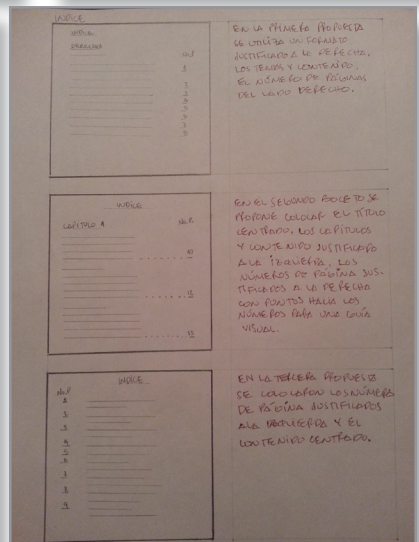 INDICE
INDICE
No.P
EN LA PRIMERA PROPUESTA
SE UTILIZA UN FORMATO
JUSTIFICADO A LA DERECHA.
LOS TEMAS Y CONTENIDO,
EL NÚMERO DE PÁGINAS
DEL LADO DERECHO.
INDICE
CAPÍTULO 1
No.P.
10
12
EN EL SEGUNDO BOCETO SE
PROPONE COLOCAR EL TÍTULO
CENTRADO. LOS CAPITULOS
Y CONTENIDO JUSTIFICADO
A LA IZQUIERDA, LOS
NÚMEROS DE PÁGINA JUS-
TIFICADOS A LA DERECHA
CON PUNTOS HACIA LOS
NÚMEROS PARA UNA GUÍA
VISUAL.
INDICE
No.P
1
2
3
4
5
6
7
8
9
EN LA TERCERA PROPUESTA
SE COLOCARON LOS NÚMEROS
DE PÁGINA JUSTIFICADOS
A LA IZQUIERDA Y EL
CONTENIDO CENTRADO.